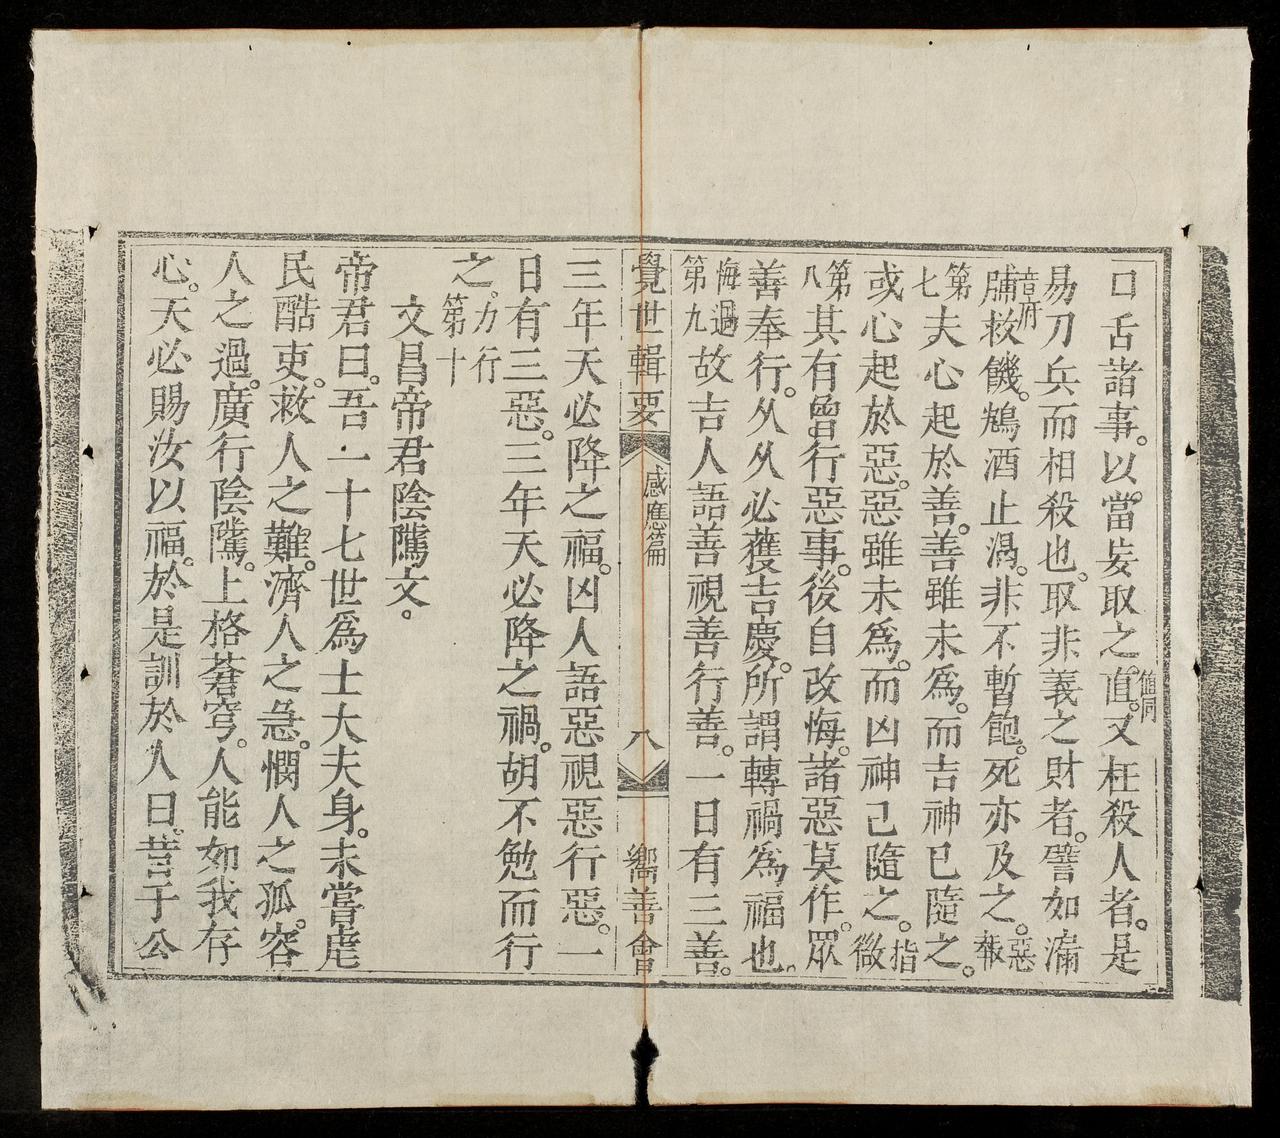 口舌諸事。以當妄取之直。值同又枉殺人者。是
易刀兵而相殺也。取非義之財者。譬如漏
脯音府救饑。鴆酒止渴。非不暫飽。死亦及之。惡報
第七夫心起於善。善雖未為。而吉神已隨之。
或心起於惡。惡雖未為。而凶神已隨之。指微
第八其有曾行惡事。後自改悔。諸惡莫作。眾
善奉行。久久必獲吉慶。所謂轉禍為福也。
悔過第九故吉人語善視善行善。一日有三善。
覺世輯要 感應篇 八 嚮善會
三年天必降之福。凶人語惡視惡行惡。一
日有三惡。三年天必降之禍。胡不勉而行
之。力行第十
文昌帝君陰隲文。
帝君曰。吾一十七世為士大夫身。未嘗虐
民酷吏。救人之難。濟人之急。憫人之孤。容
人之過。廣行陰隲。上格蒼穹。人能如我存
心。天必賜汝以福。於是訓於人曰。昔于公